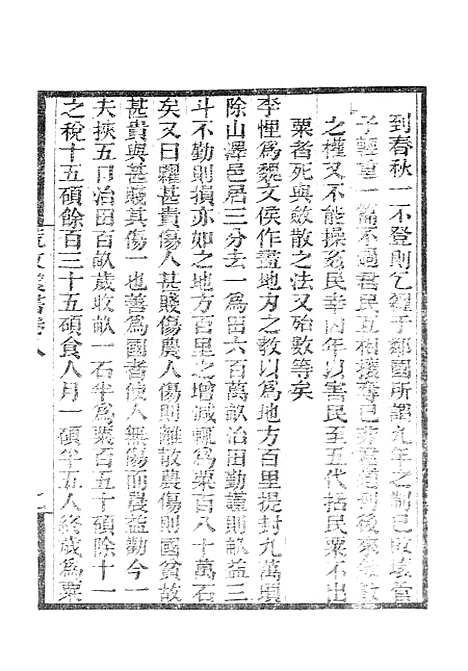 到春秋一不登則乞糴于鄰國所謂九年之制已敗壞管
子輕重一篇不過君民互相攘奪已非
之權又不能操縱民幸凶年以害民至五代括民粟不出
粟者死與斂散之法又殆數等矣
李悝爲魏文侯作盡地力之教以爲地方百里提封九萬頃
除山澤邑居三分去一爲田六百萬畝治田勤謹則畝益三
斗不勤則損亦如之地方百里之增減輒爲粟百八十萬石
矣又曰糴甚貴傷人甚賤傷農人傷則離散農傷則國貧故
甚貴與甚賤其傷一也善爲國者使人無傷而農益勸今一
夫挾五口治田百畝歲收畝一石半爲粟百五十碩除十一
之稅十五碩餘百三十五碩食人月一碩半五人終歲爲粟
荒政叢書卷八